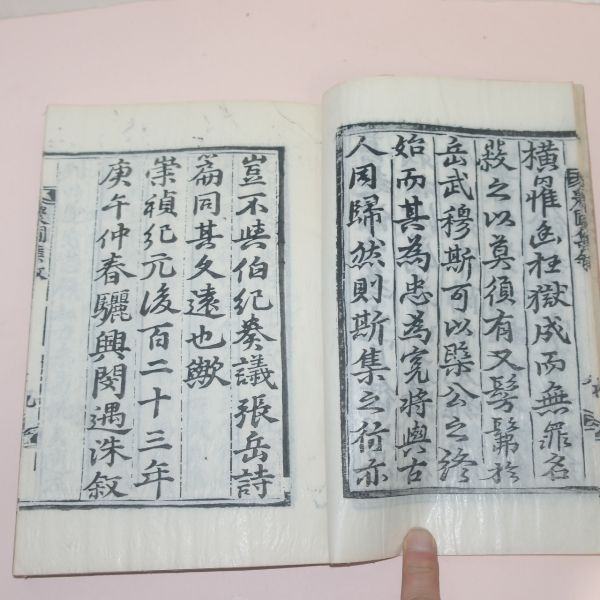 橫罹𠙽枉獄成而無罪名
殺之以莫須有又髣髴於
岳武穆斯可以槩公之終
始而其為忠為寃將與古
人同歸然則斯集之行亦
豈不與伯紀奏議張岳詩
篇同其久遠也歟
崇禎紀元後百二十三年
庚午仲春驪興閔遇洙敘